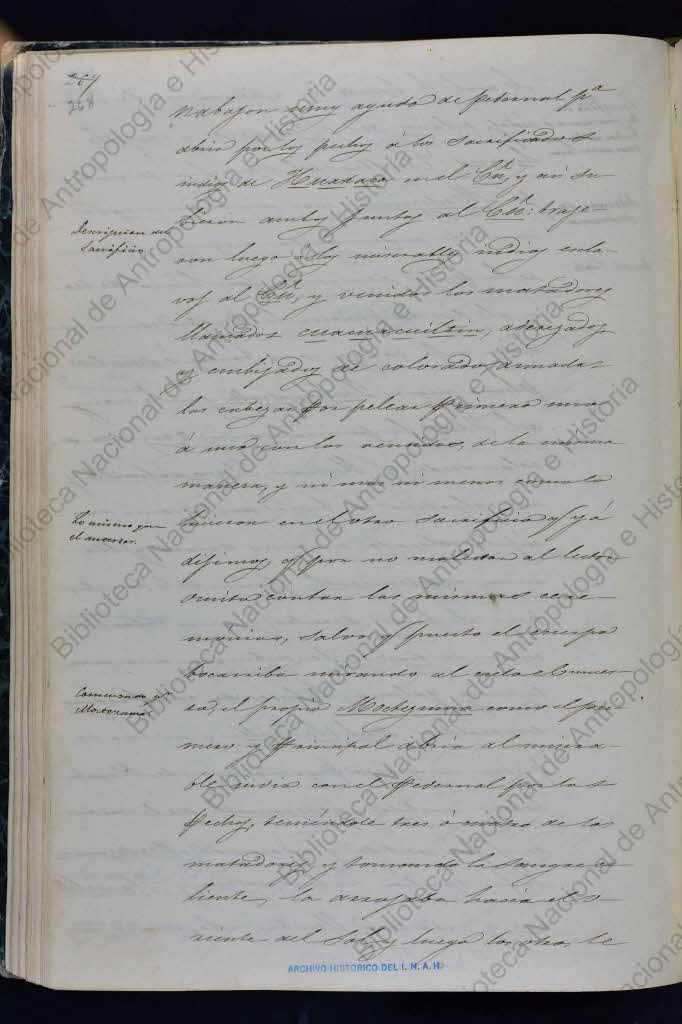 264
268
nabajon muy agudo de pedernal pª
abrir por los pechos á los sacrificados
indios de Huaxaca en el Cú, y así su
bieron ambos juntos al Cú: traje-
ron luego á los miserables indios escla-
vos al Cú, y venidos los matadores
llamados cuacuacuiltin, aderezados
y embijados de colorado, armadas
las cabezas por pelear primero uno
á uno con los venidos, de la misma
manera, y ni mas ni menos como lo
hicieron en el otro sacrificio q ya
dijimos, y por no molestar al lector
omito contar las mismas cere-
mónias, salvo q puesto el cuerpo
bocarriba mirando al cielo el muer-
to, el propio Moctezuma como el pri-
mero y principal abria al misera-
ble indio con el pedernal por los
pechos, teniéndole tres ó cuatro de los
matadores, y tomando la sangre ca-
liente, la arrojaba hacia el o
riente del Sol, y luego los otros le
Descripcion del
Sacrificio
Lo mismo que
el anterior.
Comenzado pr
Moctezuma
ARCHIVO HISTORICO DEL I. N. A. H.
Biblioteca Nacional de Antropología e Historia